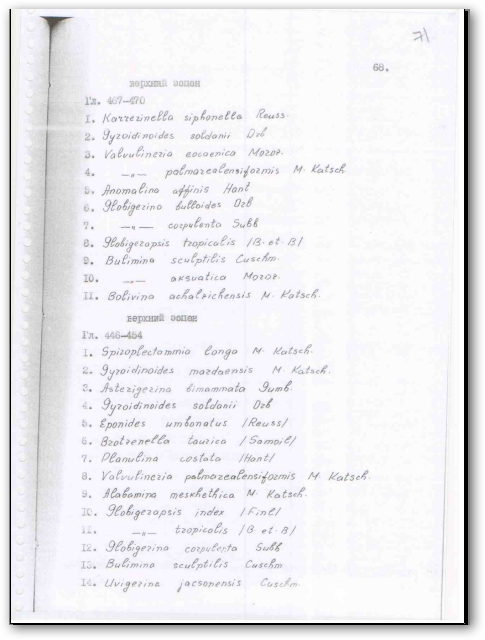 71
68.
верхний эоцен
Гл. 467-470
1. Karrerinella siphonella Reuss
2. Gyroidinoides soldanii Orb
3. Valvulineria eocaenica Moroz.
4. —"— palmarealensiformis M. Katsch
5. Anomalina affinis Hant
6. Globigerina bulloides Orb
7. —"— corpulenta Subb
8. Globigerapsis tropicalis /B. et. B/
9. Bulimina sculptilis Cuschm.
10. —"— aksuatica Moroz.
11. Bolivina achalzichensis M. Katsch.
верхний эоцен
Гл. 446-454
1. Spiroplectammia longa M. Katsch.
2. Gyroidinoides mardaensis M. Katsch.
3. Asterigerina bimammata Gumb.
4. Gyroidinoides soldanii Orb
5. Eponides umbonatus /Reuss/
6. Brotzenella taurica /Samoil/
7. Planulina costata /Hant/
8. Valvulineria palmarealensiformis M. Katsch.
9. Alabamina meskhethica M. Katsch.
10. Globigerapsis index /Finl/
11. —"— tropicalis /B. et. B/
12. Globigerina corpulenta Subb
13. Bulimina sculptilis Cuschm
14. Uvigerina jacsonensis Cuschm.